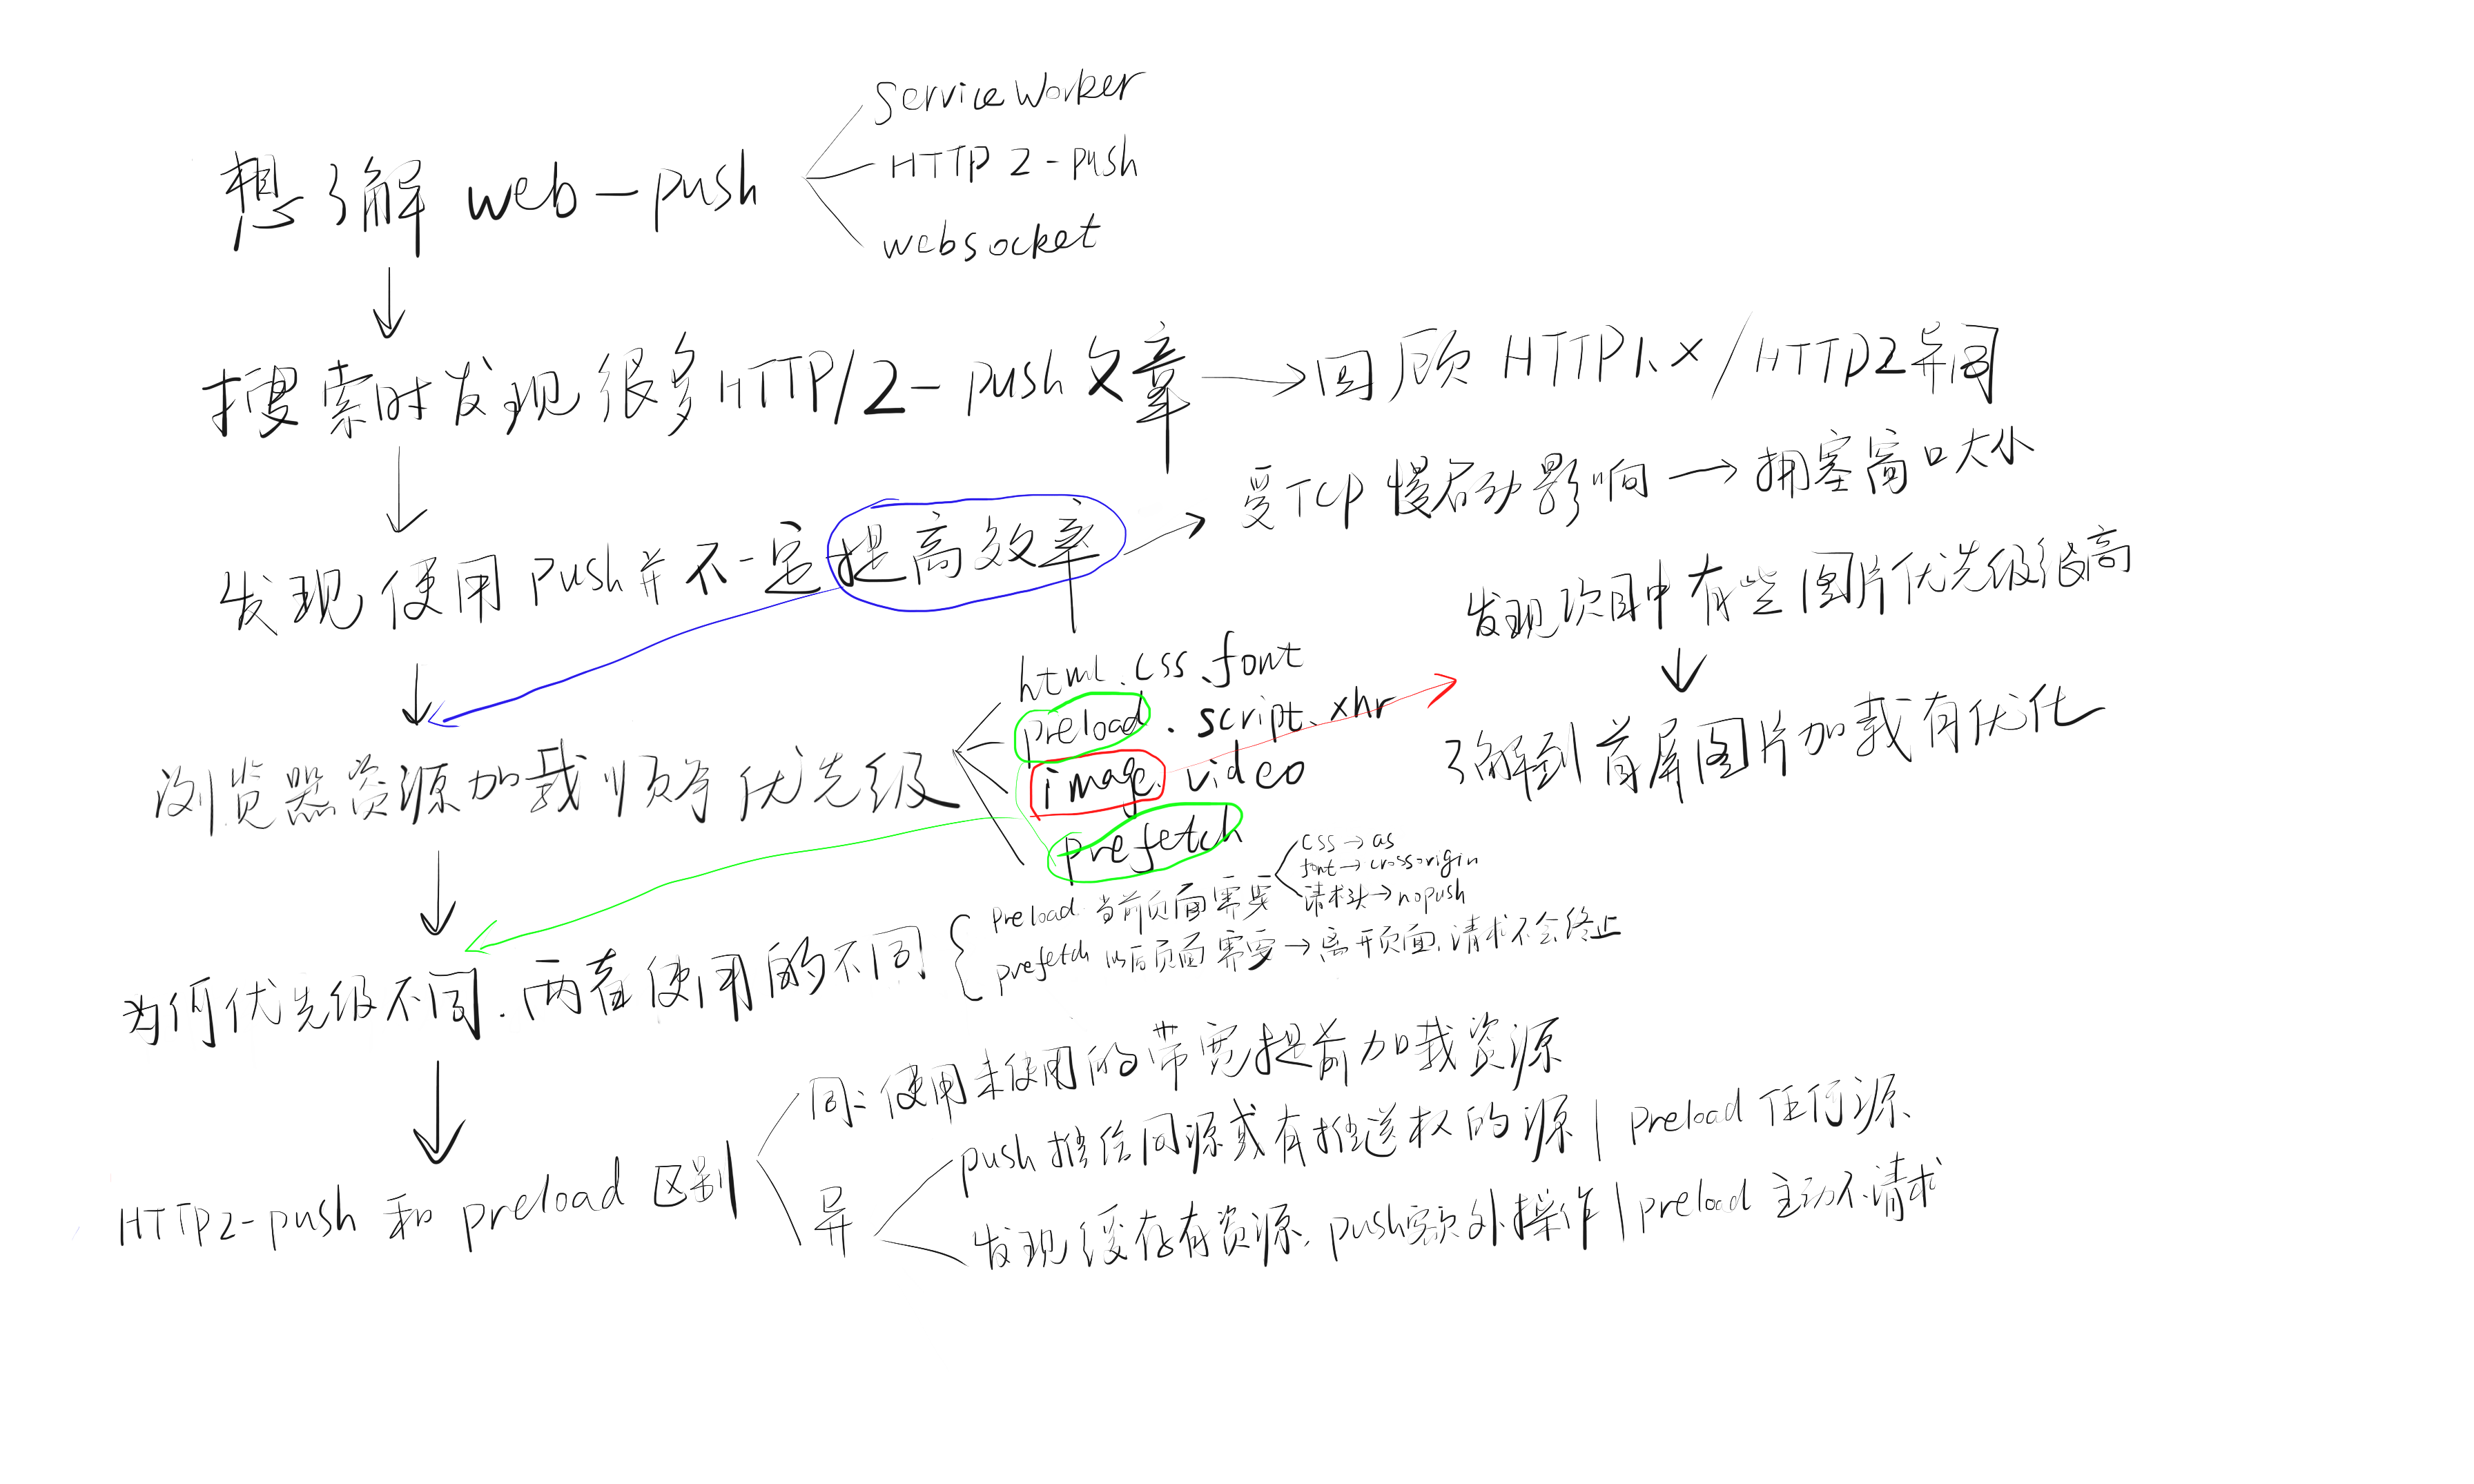 想了解 web-push
ServiceWorker
HTTP 2-push
websocket
搜索时发现很多HTTP/2-push文章
回顾 HTTP1.x/HTTP2异同
发现使用push并不一定提高效率
受TCP慢启动影响
拥塞窗口大小
浏览器资源加载顺序优先级
html.css.font
preload.script.xhr
image.video
prefetch
发现项目中有些图片优先级很高
了解到首屏图片加载有优化
为何优先级不同.两者使用的不同
preload 当前页面需要
css→as
font→crossorigin
请求头→nopush
prefetch 以后页面需要→离开页面.请求不会终止
HTTP2-push 和 preload 区别
同:使用未使用的带宽提前加载资源
异
push推给同源或有推送权的源|preload 任何源
发现缓存有资源,push需额外操作|preload 主动不请求